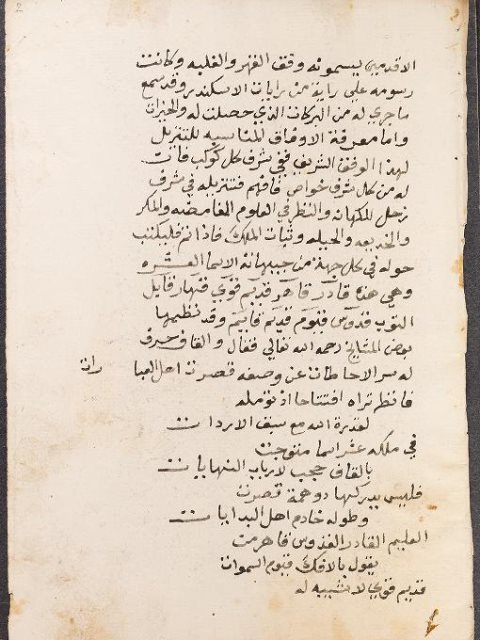 الاقدمين يسمونه وفق القهر والغلبه وكانت
رسومه على راية من رايات الاسكندر وقد سمع
ما جرى له من البركات الذي حصلت له والخيرات
واما معرفة الاوفاق المناسبه للتنزيل
لهذا الوفق الشريف ففي شرف كل كوكب فانت
له من كل شرف خواص فافهم فتنزيله في شرف
زحل للكهانه والنظر في العلوم الغامضه والمكر
والخديعه والحيله وثبات الملك فاذا تم فليكتب
حوله في كل جهة من جهاته الاسما العشره
وهي هذه قادر قاهر قديم قوي قهار قابل
التوب قدوس قيوم قديم قايم وقد نظمها
بعض المشايخ رحمه الله تعالى فقال والقاف حرف
له سر الاحاطات عن وصفه قصرت اهل العبا رات
فانظر تراه افتتاحا اذ تومله
لقدرة الله مع سبق الارادات
في ملكه عشر اسما متوجت
بالقاف حجب لارباب النهايات
فليس يدركها ذو همة قصرت
وطوله خادم اهل البدايات
العليم القادر القدوس قاهر من
يقول بالافك قيوم السموات
قديم قوي لا شبيه له